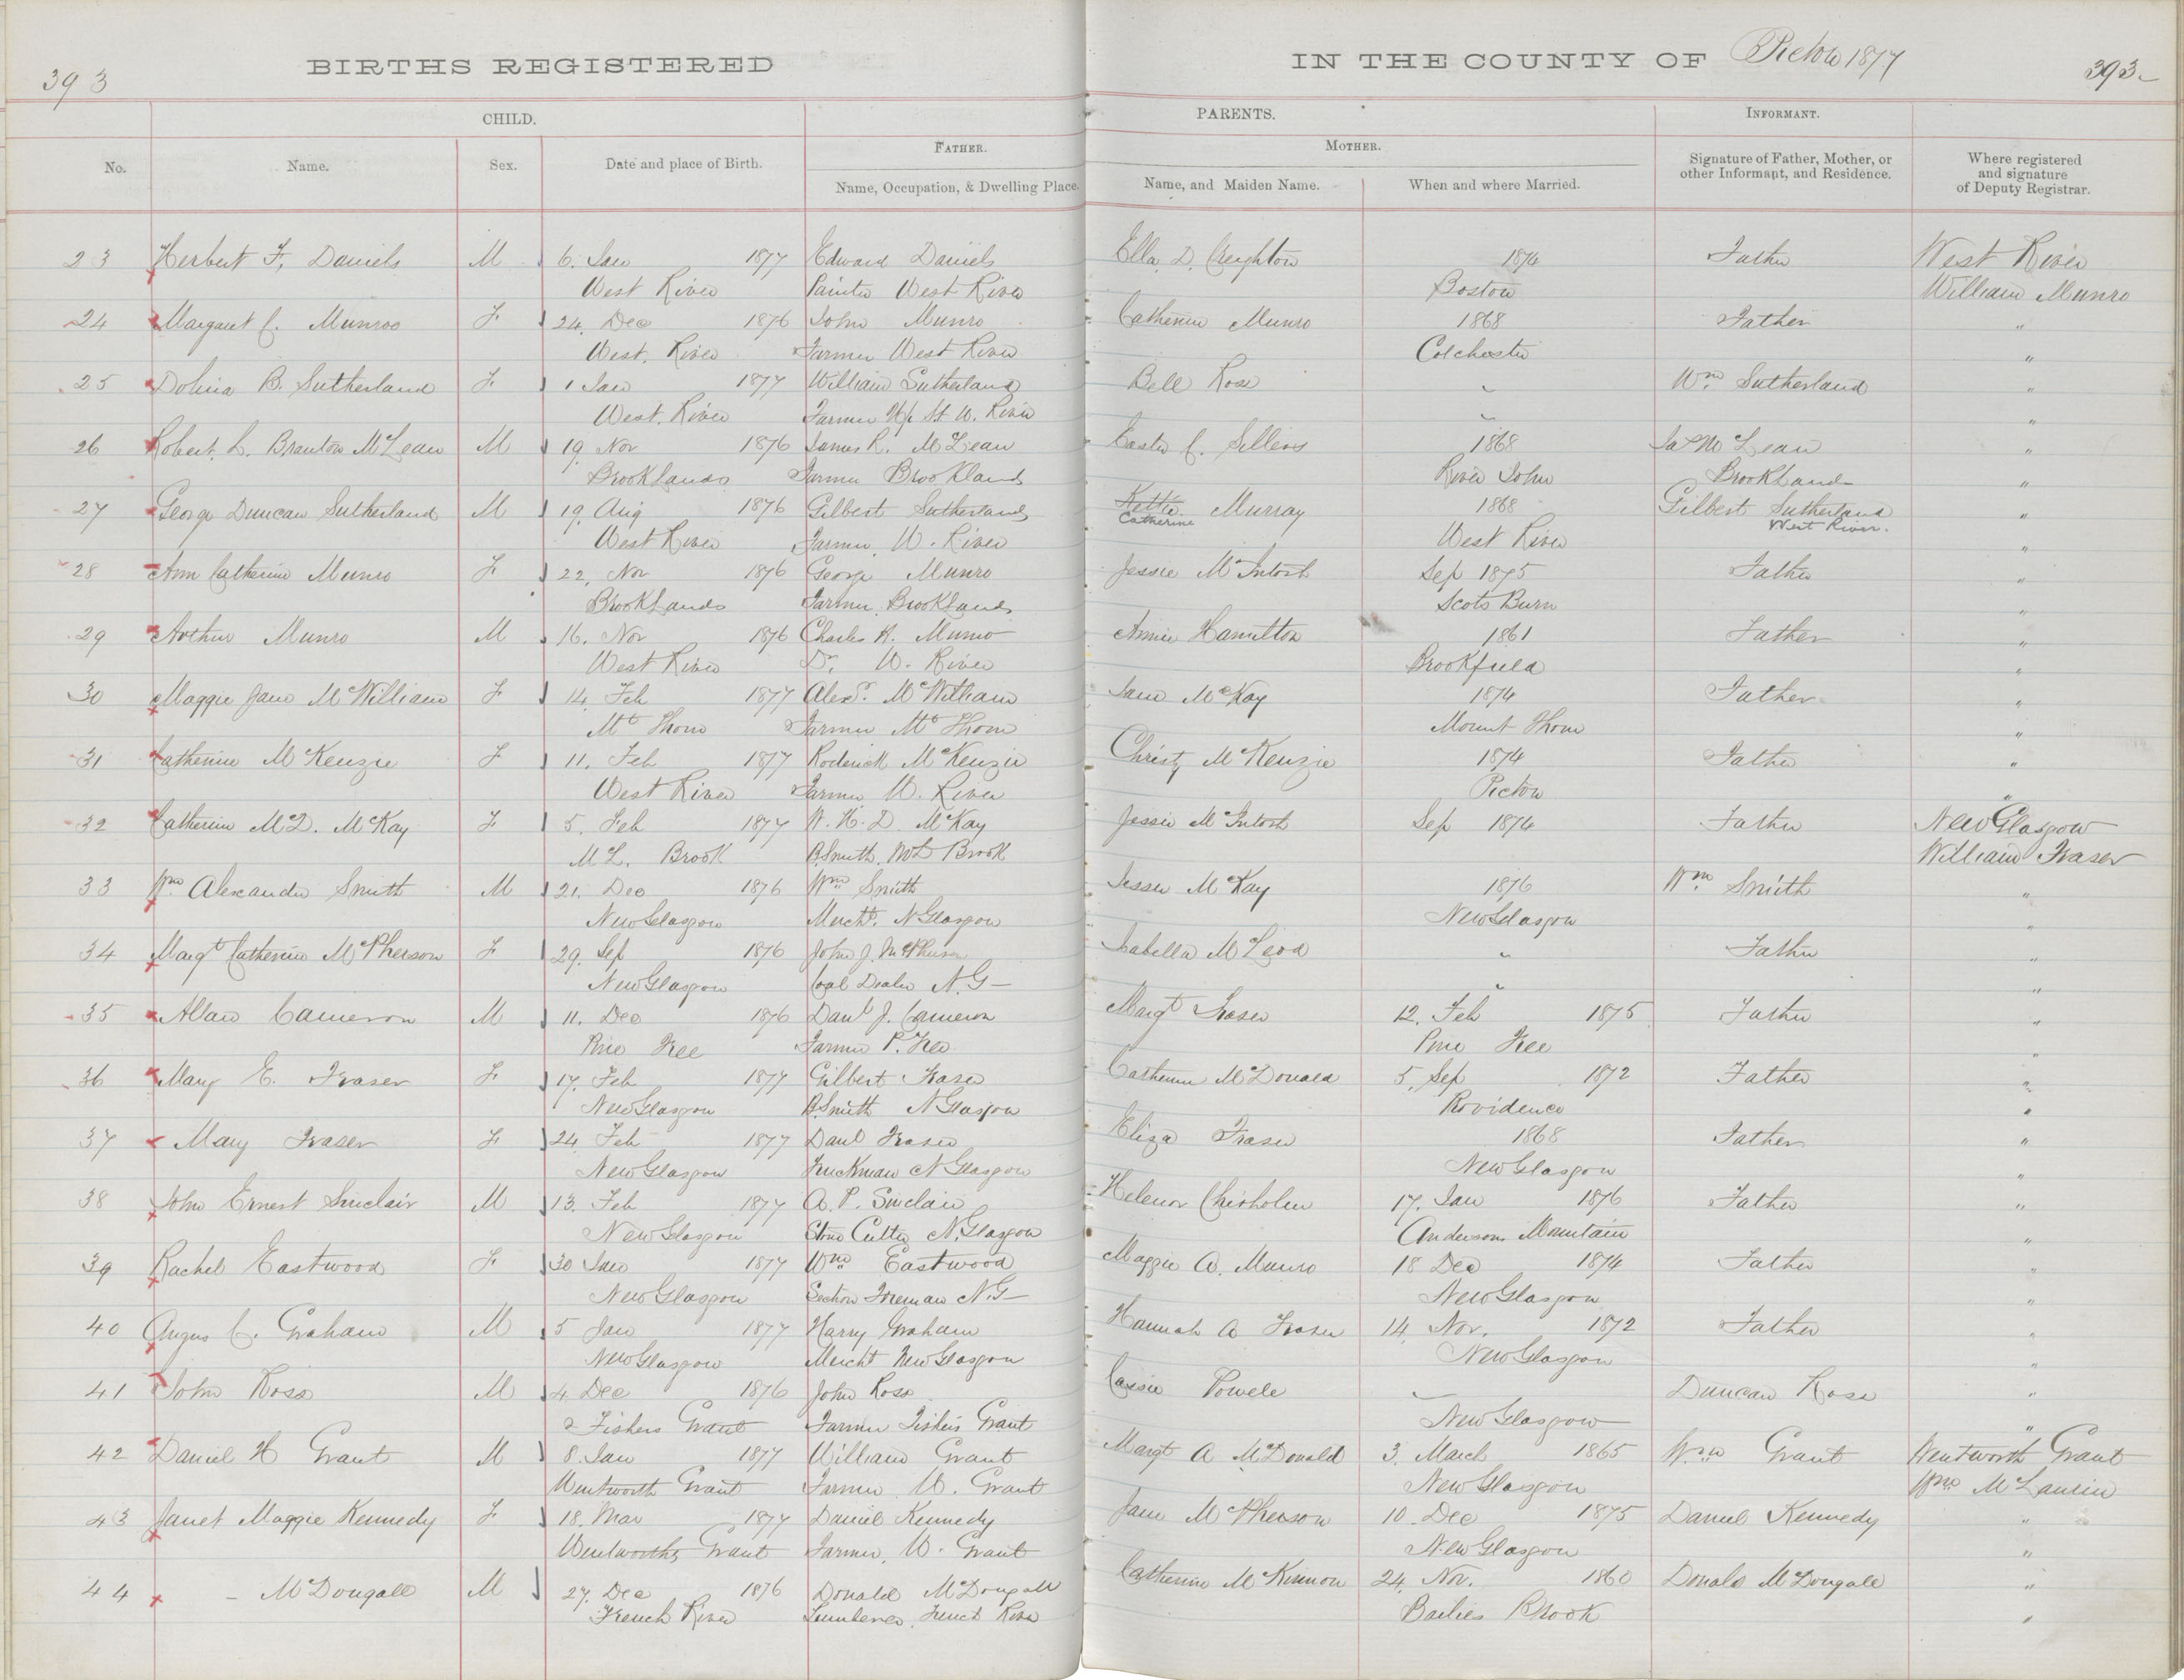 393 BIRTHS REGISTERED IN THE COUNTY OF Pictou 1877 393
CHILD. PARENTS. INFORMANT.
No. Name. Sex. Date and place of Birth. FATHER. Name, Occupation, & Dwelling Place. MOTHER. Name, and Maiden Name. When and where Married. Signature of Father, Mother, or other Informant, and Residence. Where registered and signature of Deputy Registrar.
23 Herbert F. Daniels M 6. Jan 1877 Edward Daniels Ella D. Creighton 1874 Father West River
West River Painter West River Boston William Munro
24 Margaret C. Munroo F 24. Dec 1876 John Munro Catherine Munro 1868 Father "
West. River Farmer West River Colchester "
25 Dolina B. Sutherland F 1 Jan 1877 William Sutherland Bell Ross " Wm Sutherland "
West. River Farmer Up St W. River " "
26 Robert L. Branton McLean M 19. Nov 1876 James R. McLean Easter C. Sellers 1868 Jas McLean "
Brooklands Farmer Brookland River John Brookland "
27 George Duncan Sutherland M 19. Aug 1876 Gilbert Sutherland Kettie Catherine Murray 1868 Gilbert Sutherland West River. "
West River Farmer W. River West River "
28 Ann Catherine Munro F 22. Nov 1876 George Munro Jessie McIntosh Sep 1875 Father "
Brooklands Farmer Brooklands Scots Burn "
29 Arthur Munro M 16. Nov 1876 Charles H. Munro Annie Hamilton 1861 Father "
West River Dr. W. River Brookfield "
30 Maggie Jane McWilliam F 14. Feb 1877 Alexr. McWilliam Jane McKay 1874 Father "
Mt Thom Farmer Mt Thom Mount Thom "
31 Catherine McKenzie F 11. Feb 1877 Roderick McKenzie Christy McKenzie 1874 Father "
West River Farmer W. River Pictou "
32 Catherine McD. McKay F 5. Feb 1877 W. H. D. McKay Jessie McIntosh Sep 1874 Father New Glasgow
McL. Brook B.Smith. McL Brook William Fraser
33 Wm Alexander Smith M 21. Dec 1876 Wm Smith Jessie McKay 1876 Wm Smith "
New Glasgow Mercht. N Glasgow New Glasgow "
34 Margt Catherine McPherson F 29. Sep 1876 John J. McPherson Isabella McLeod " Father "
New Glasgow Coal Dealer N.G " "
35 Allan Cameron M 11. Dec 1876 Danl J. Cameron Margt Fraser 12. Feb 1875 Father "
Pine Tree Farmer P. Tree Pine Tree "
36 Mary E. Fraser F 17. Feb 1877 Gilbert Fraser Catherine McDonald 5. Sep 1872 Father "
New Glasgow B.Smith N Glasgow Providence "
37 Mary Fraser F 24. Feb 1877 Danl Fraser Eliza Fraser 1868 Father "
New Glasgow Truckman N Glasgow New Glasgow "
38 John Ernest Sinclair M 13. Feb 1877 A. P. Sinclair Helenor Chisholm 17. Jan 1876 Father "
New Glasgow Stone Cutter N. Glasgow Andersons Mountain "
39 Rachel Eastwood F 30 Jan 1877 Wm Eastwood Maggie A. Munro 18 Dec 1874 Father "
New Glasgow Section Foreman N.G New Glasgow "
40 Angus C. Graham M 5 Jan 1877 Harry Graham Hannah A Fraser 14. Nov. 1872 Father "
New Glasgow Mercht New Glasgow New Glasgow "
41 John Ross M 4 Dec 1876 John Ross Cassie Powell " Duncan Ross "
Fishers Grant Farmer Fishers Grant New Glasgow "
42 Daniel H Grant M 8. Jan 1877 William Grant Margt A McDonald 3. March 1865 Wm Grant Wentworth Grant
Wentworth Grant Farmer W. Grant New Glasgow Wm McLaurin
43 Janet Maggie Kennedy F 18. Mar 1877 Daniel Kennedy Jane McPherson 10. Dec 1875 Daniel Kennedy "
Wentworths Grant Farmer, W. Grant New Glasgow "
44 - McDougall M 27. Dec 1876 Donald McDougall Catherine McKinnon 24. Nov. 1860 Donald McDougall "
French River French River Bailies Brook "